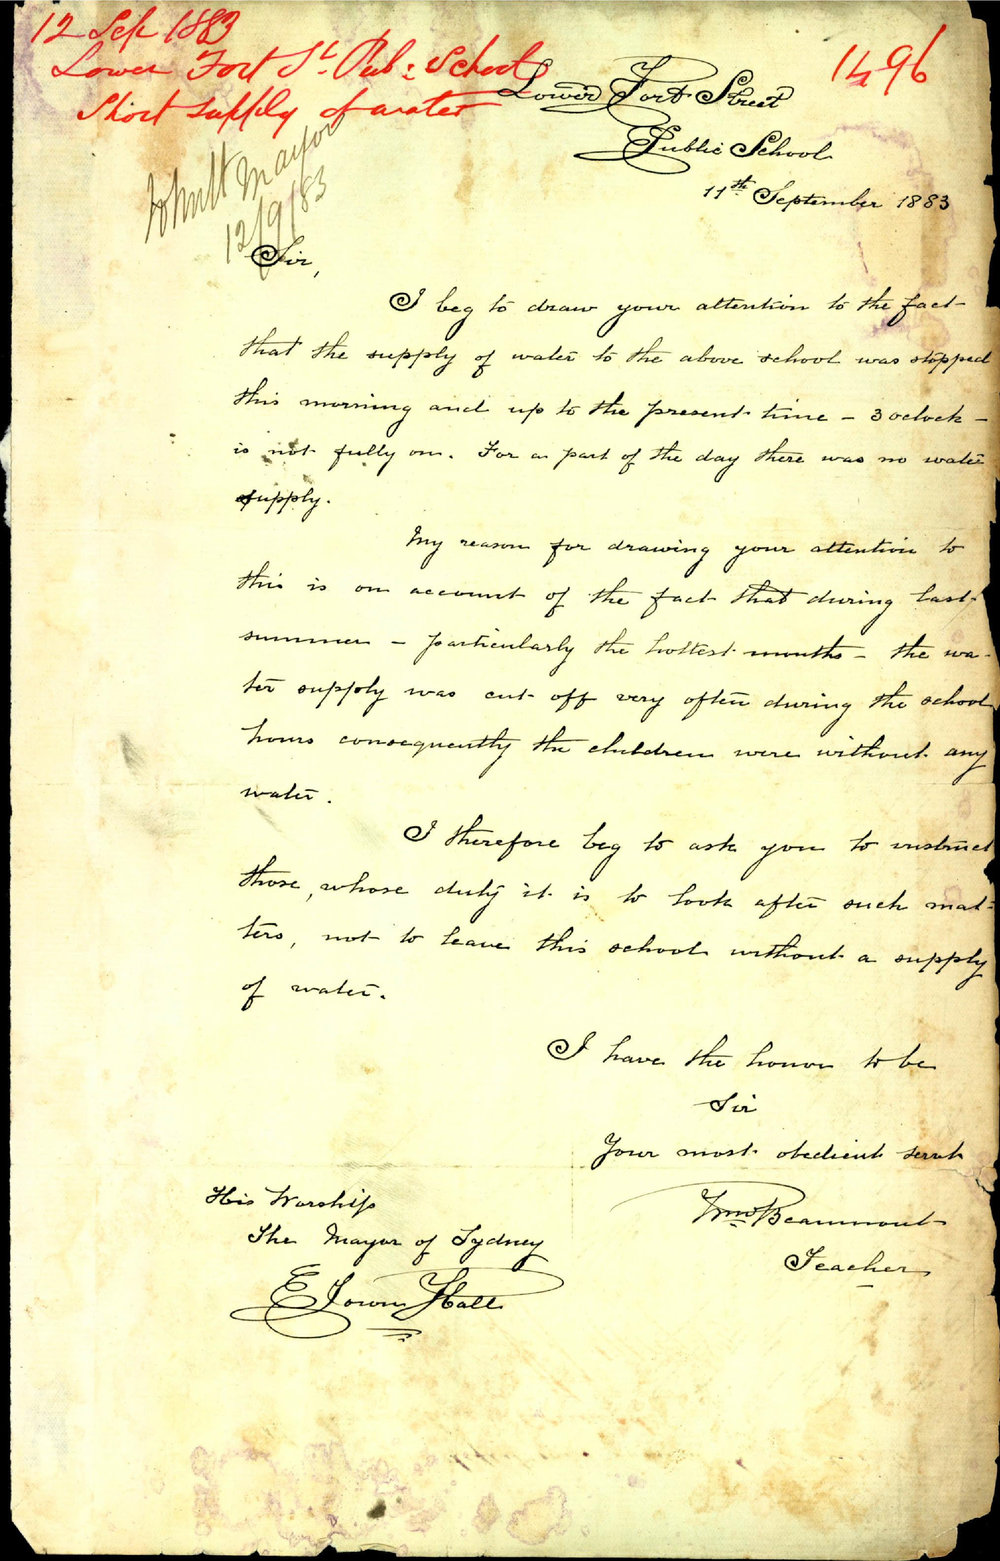 12 Sep 1883
Lower Fort St. Pub: School
Short supply of water
1496
Mayor
12/9/83
Lower Fort Street
Public School
11th September 1883
Sir,
I beg to draw your attention to the fact
that the supply of water to the above school was stopped
this morning and up to the present time – 3 oclock –
is not fully on. For a part of the day there was no water
supply.
My reason for drawing your attention to
this is on account of the fact that during last
summer – particularly the hottest months – the wa-
ter supply was cut off very often during the school
hours consequently the children were without any
water.
I therefore beg to ask you to instruct
those, whose duty it is to look after such mat-
ters, not to leave this school without a supply
of water.
I have the honor to be
Sir
Your most obedient servt
Wm Beaumont
Teacher
His Worship
The Mayor of Sydney
Town Hall